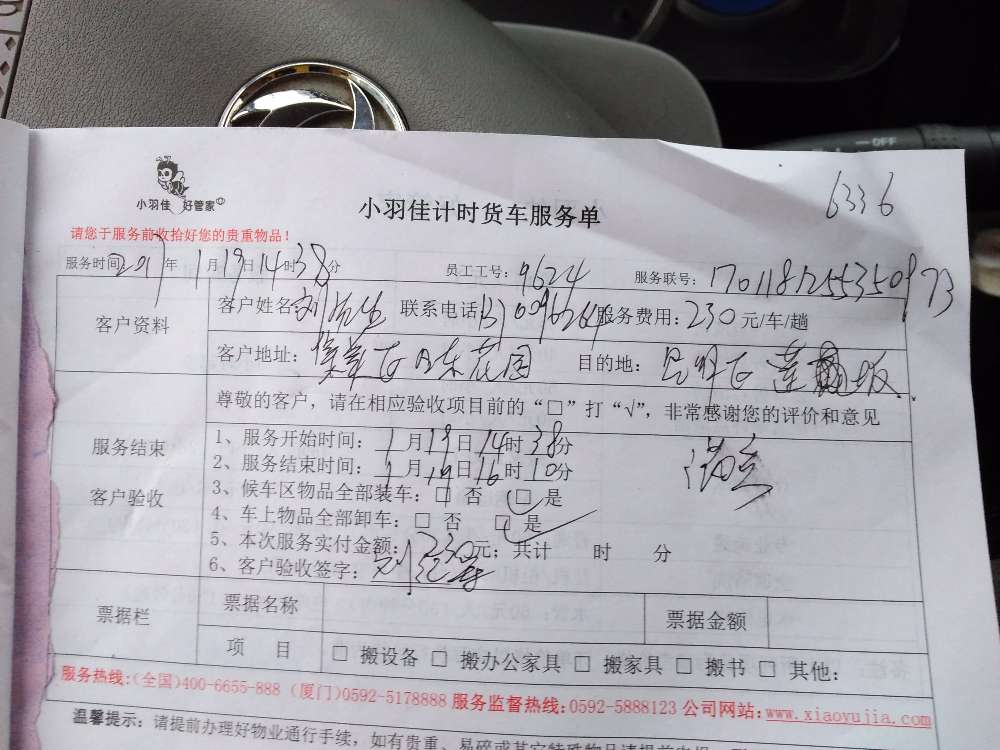 OFF
6336
小羽佳 好管家
小羽佳计时货车服务单
请您于服务前收拾好您的贵重物品！
服务时间 2017年 1月19日14时38分 员工工号：9624 服务联号：
客户资料
客户姓名 刘先生 联系电话 服务费用：230元/车/趟
客户地址： 花园 目的地：
尊敬的客户，请在相应验收项目前的“□”打“√”，非常感谢您的评价和意见
服务结束
客户验收
1、服务开始时间：1月19日14时38分
2、服务结束时间：1月19日16时10分
满意
3、候车区物品全部装车：□ 否 □ 是
4、车上物品全部卸车：□ 否 □ 是
5、本次服务实付金额：230元；共计 时 分
6、客户验收签字：
票据栏
票据名称 票据金额
项 目 □ 搬设备 □ 搬办公家具 □ 搬家具 □ 搬书 □ 其他：
服务热线:(全国)400-6655-888 (厦门)0592-5178888 服务监督热线:0592-5888123 公司网站:www.xiaoyujia.com
温馨提示：请提前办理好物业通行手续，如有贵重、易碎或其它特殊物品请提前